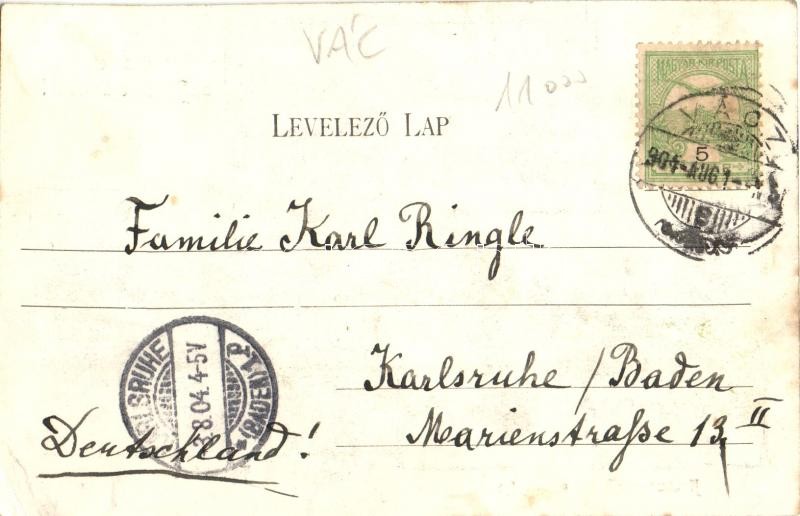 VÁC
11000
MAGYAR KIR. POSTA
LEVELEZŐ LAP
VÁCZ
5
904-AUG
Familie Karl Ringle
KARLSRUHE (BADEN) 1 P
8.04.4-5V
Karlsruhe / Baden
Deutschland!
Marienstraße 13 II